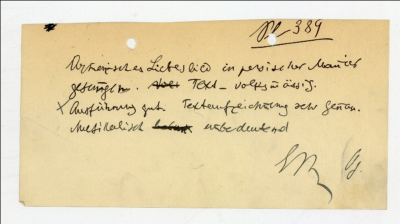 Pl 389
Liebeslied in persischer Manier
gesungen. Text - volksmässig.
x Ausführung gut. Textaufzeichnung sehr genau.
Musikalisch unbedeutend